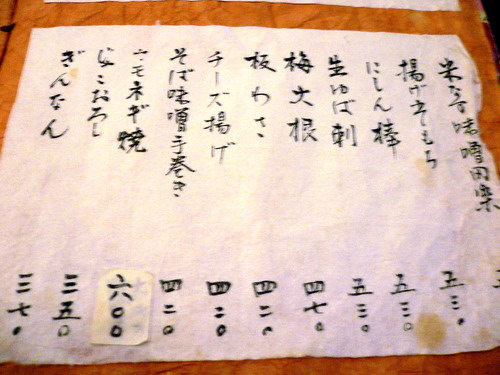 米なす味噌田楽 五三〇
揚げそばもち 五三〇
にしん棒 五三〇
生ゆば刺 四七〇
梅大根 四二〇
板わさ 四二〇
チーズ揚げ 四二〇
そば味噌手巻き
ウモネギ焼 六〇〇
じゃこおろし 三五〇
ぎんなん 三七〇